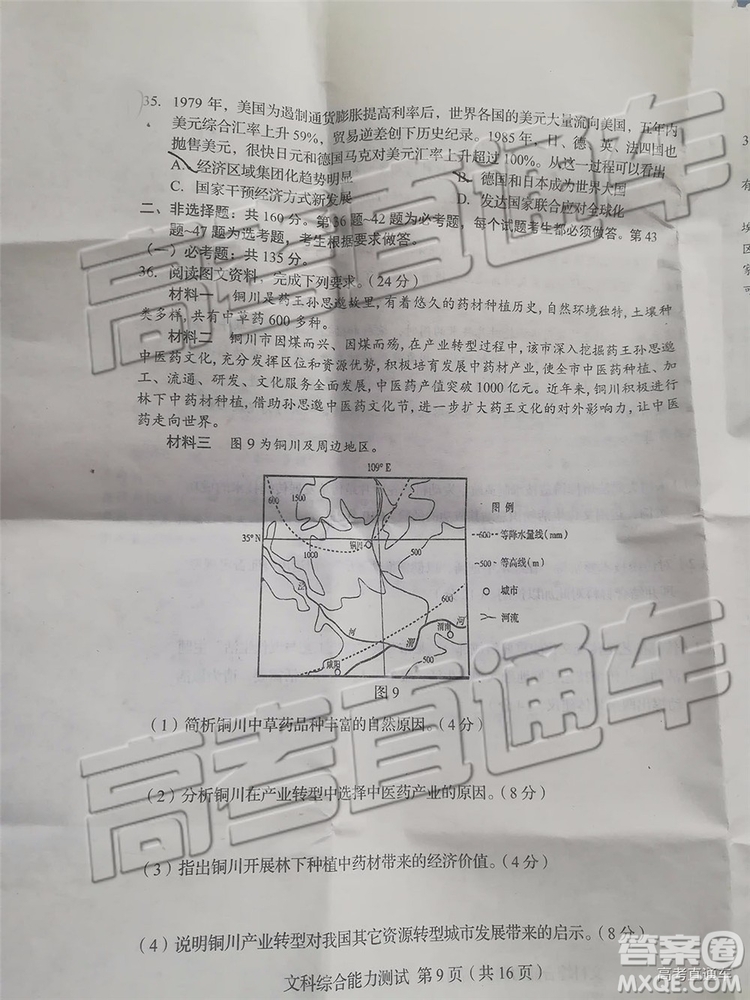 35. 1979 年，美国为遏制通货膨胀提高利率后，世界各国的美元大量流向美国，五年内
美元综合汇率上升 59%，贸易逆差创下历史纪录。1985 年，日、德、英、法四国也
抛售美元，很快日元和德国马克对美元汇率上升超过 100%。从这一过程可以看出
A. 经济区域集团化趋势明显 B. 德国和日本成为世界大国
C. 国家干预经济方式新发展 D. 发达国家联合应对全球化
二、非选择题：共 160 分。第 36 题~42 题为必考题，每个试题考生都必须做答。第 43
题~47 题为选考题，考生根据要求做答。
（一）必考题：共 135 分。
36. 阅读图文资料，完成下列要求。（24 分）
材料一 铜川是药王孙思邈故里，有着悠久的药材种植历史，自然环境独特，土壤种
类多样，共有中草药 600 多种。
材料二 铜川市因煤而兴、因煤而殇，在产业转型过程中，该市深入挖掘药王孙思邈
中医药文化，充分发挥区位和资源优势，积极培育发展中药材产业，使全市中医药种植、加
工、流通、研发、文化及健康服务蓬勃发展，中医药产值突破 1000 亿元。近年来，铜川积极进行
林下中药材种植，借助孙思邈中医药文化节，进一步扩大药王文化的对外影响力，让中医
药走向世界。
材料三 图 9 为铜川及周边地区。
109° E
600
1500
35° N
铜川
1000
500
600
泾
河
渭
渭南
河
咸阳
500
图 例
600 等降水量线(mm)
500 等高线(m)
城市
河流
图 9
（1）简析铜川中草药品种丰富的自然原因。（4 分）
（2）分析铜川在产业转型中选择中医药产业的原因。（8 分）
（3）指出铜川开展林下种植中药材带来的经济价值。（4 分）
（4）说明铜川产业转型对我国其它资源转型城市发展带来的启示。（8 分）
文科综合能力测试 第 9 页（共 16 页）
高考直通车
高考直通车
高考直通车
答案圈
MXQE.COM